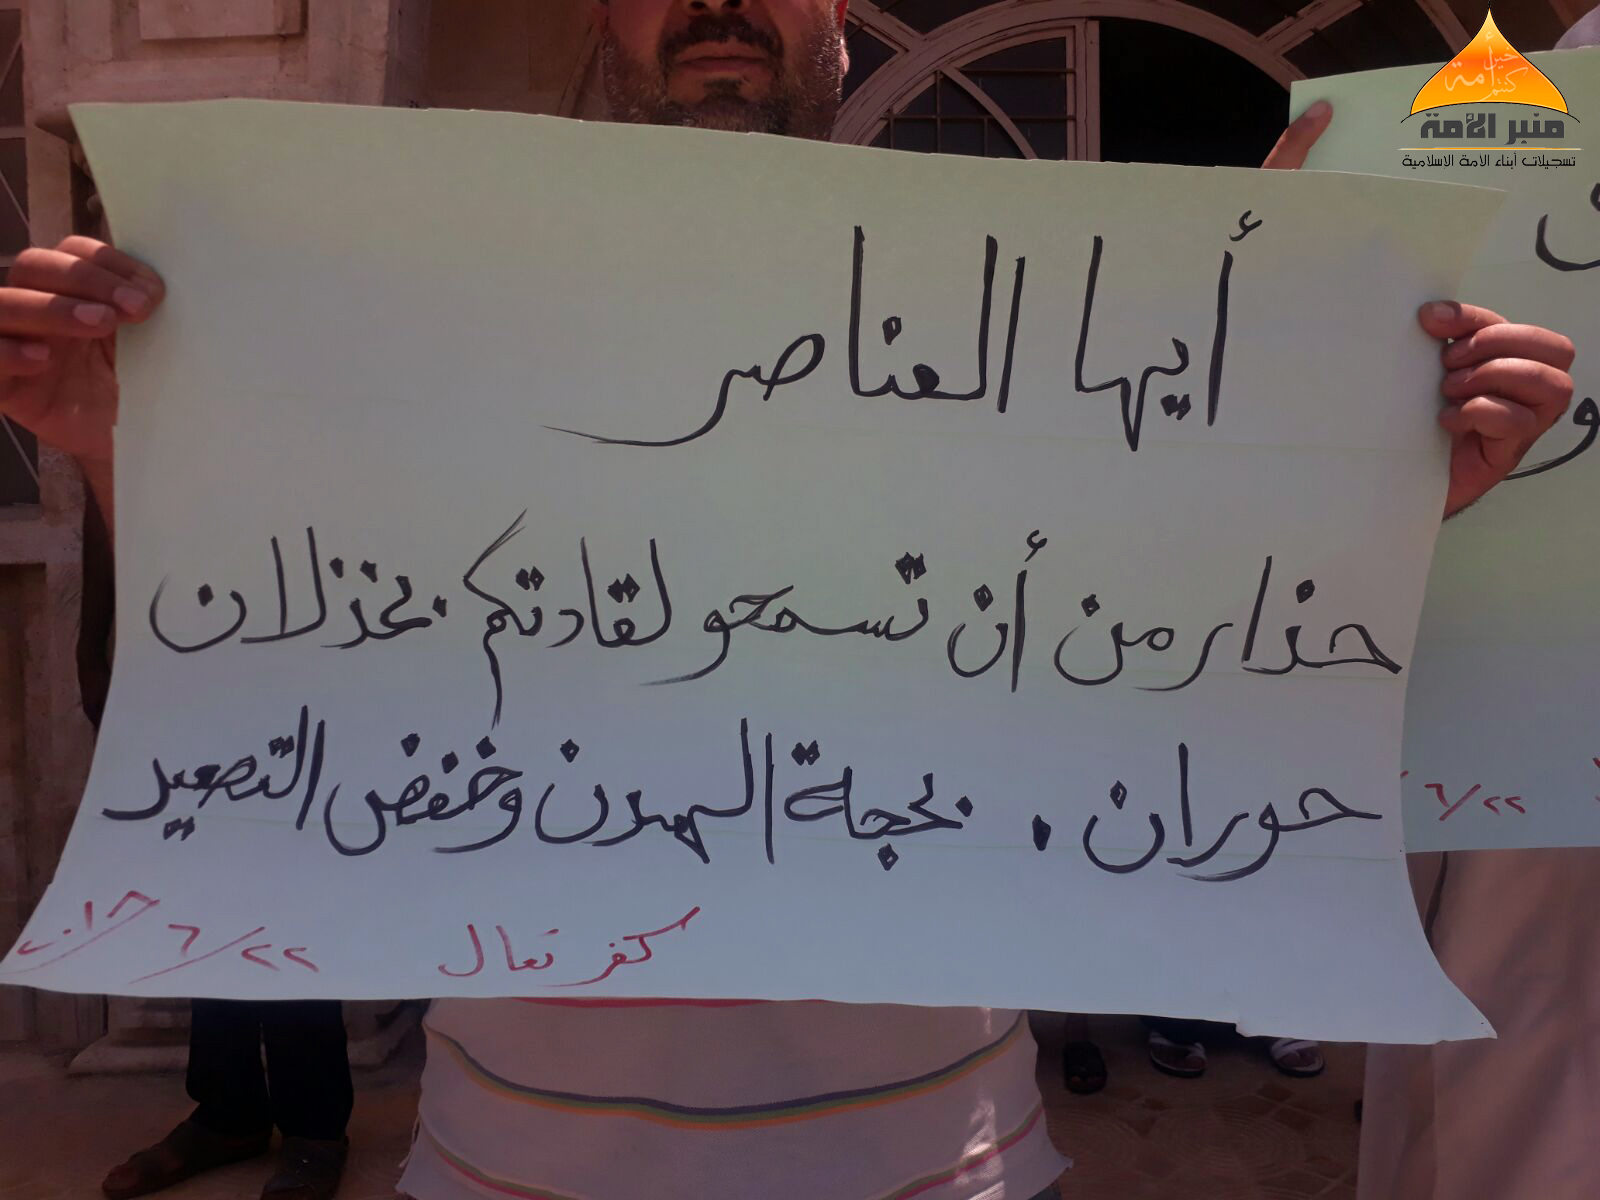 خير
أمة
كنتم
منبر الأمة
تسجيلات أبناء الامة الاسلامية
أيها العناصر
حذار من أن تسمحو لقادتكم بخذلان
حوران . بحجة الهدن وخفض التصعيد
كفر تعال ٢٢/٦
٢٢/٦
و